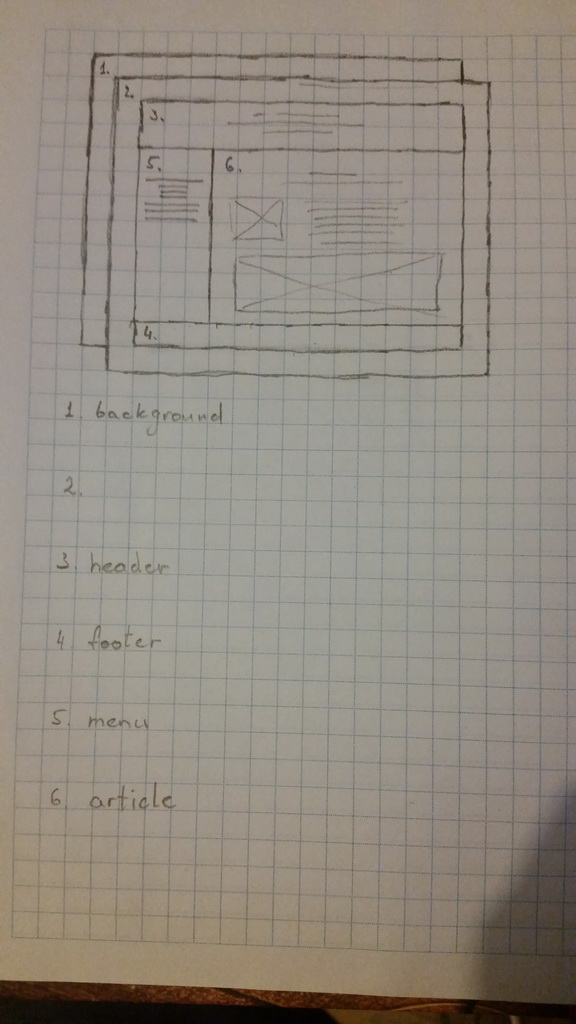 1.
2.
3.
5.
6.
4.
1. background
2.
3. header
4. footer
5. menu
6. article